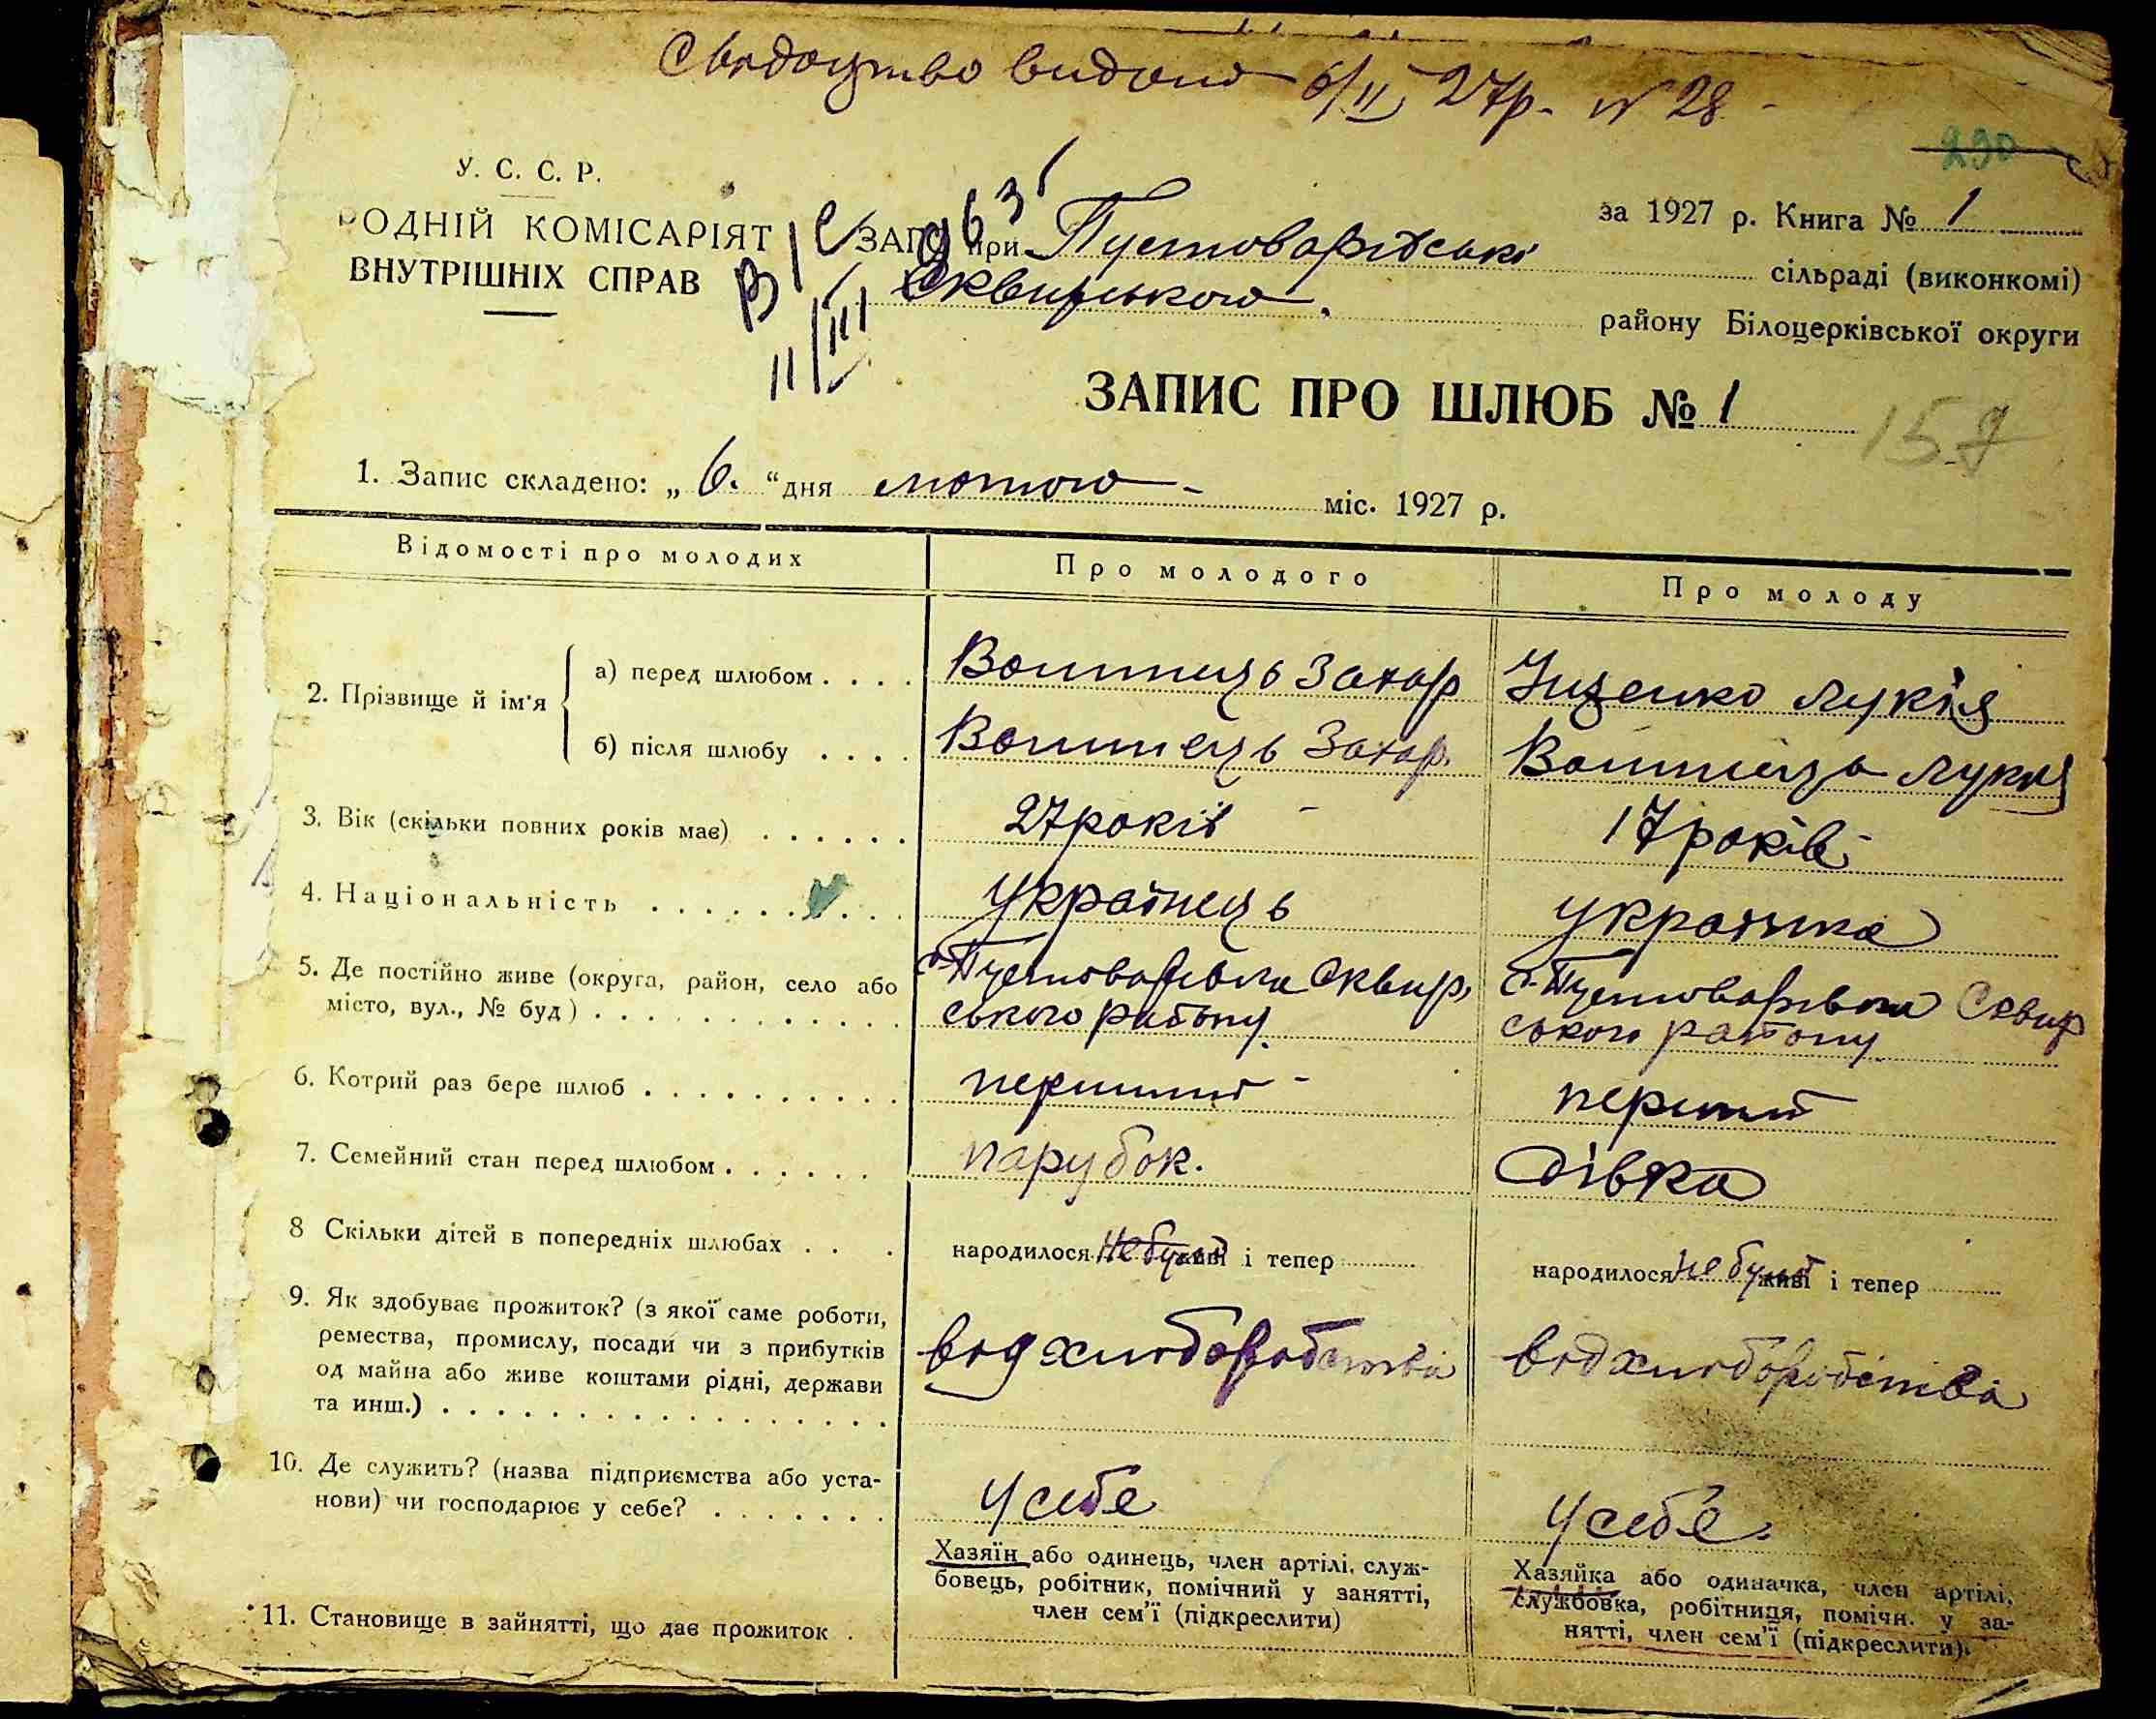 Свідоцтво видано 6/II 27р. N 28
290
У. С. С. Р.
РОДНІЙ КОМІСАРІЯТ
ВНУТРІШНІХ СПРАВ
ЗАГС при Пустоварівські сільраді (виконкомі)
за 1927 р. Книга № 1
Сквирського району Білоцерківської округи
11/III
ЗАПИС ПРО ШЛЮБ № 1
157
1. Запис складено: „ 6. “ дня лютого міс. 1927 р.
Відомості про молодих Про молодого Про молоду
2. Прізвище й ім'я
а) перед шлюбом . . . . Захар Лукія
б) після шлюбу . . . . Захар. Лукія
3. Вік (скільки повних років має) . . . . . . 27 років 17 років
4. Національність . . . . . . . . . українець українка
5. Де постійно живе (округа, район, село або с. Пустоварівка Сквир, с. Пустоварівка Сквир
місто, вул., № буд) . . . . . . . . . . . . ського району. ського району.
6. Котрий раз бере шлюб . . . . . . . . . . перший перший
7. Семейний стан перед шлюбом . . . . . . парубок. дівка
8 Скільки дітей в попередніх шлюбах . . . народилося не було живі і тепер народилося не було живі і тепер
9. Як здобуває прожиток? (з якої саме роботи,
ремества, промислу, посади чи з прибутків від хліборобства від хліборобства
од майна або живе коштами рідні, держави
та инш.) . . . . . . . . . . . . . . . . .
10. Де служить? (назва підприємства або уста-
нови) чи господарює у себе? . . . . . . . У себе У себе.
11. Становище в зайнятті, що дає прожиток .
Хазяїн або одинець, член артілі, служ-
бовець, робітник, помічний у занятті,
член сем'ї (підкреслити)
Хазяйка або одиначка, член артілі,
службовка, робітниця, помічн. у за-
нятті, член сем'ї (підкреслити).